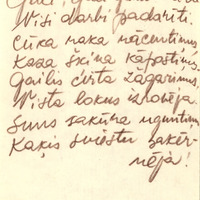 Visi darbi padarīti.
Cūka raka rācentiņus,
Kaza šķina kāpostiņus,
Gailis cirta žagariņus,
Vista lokus izravēja.
Suns sakūra uguntiņu,
Kaķis sviestu saķer-
nēja!